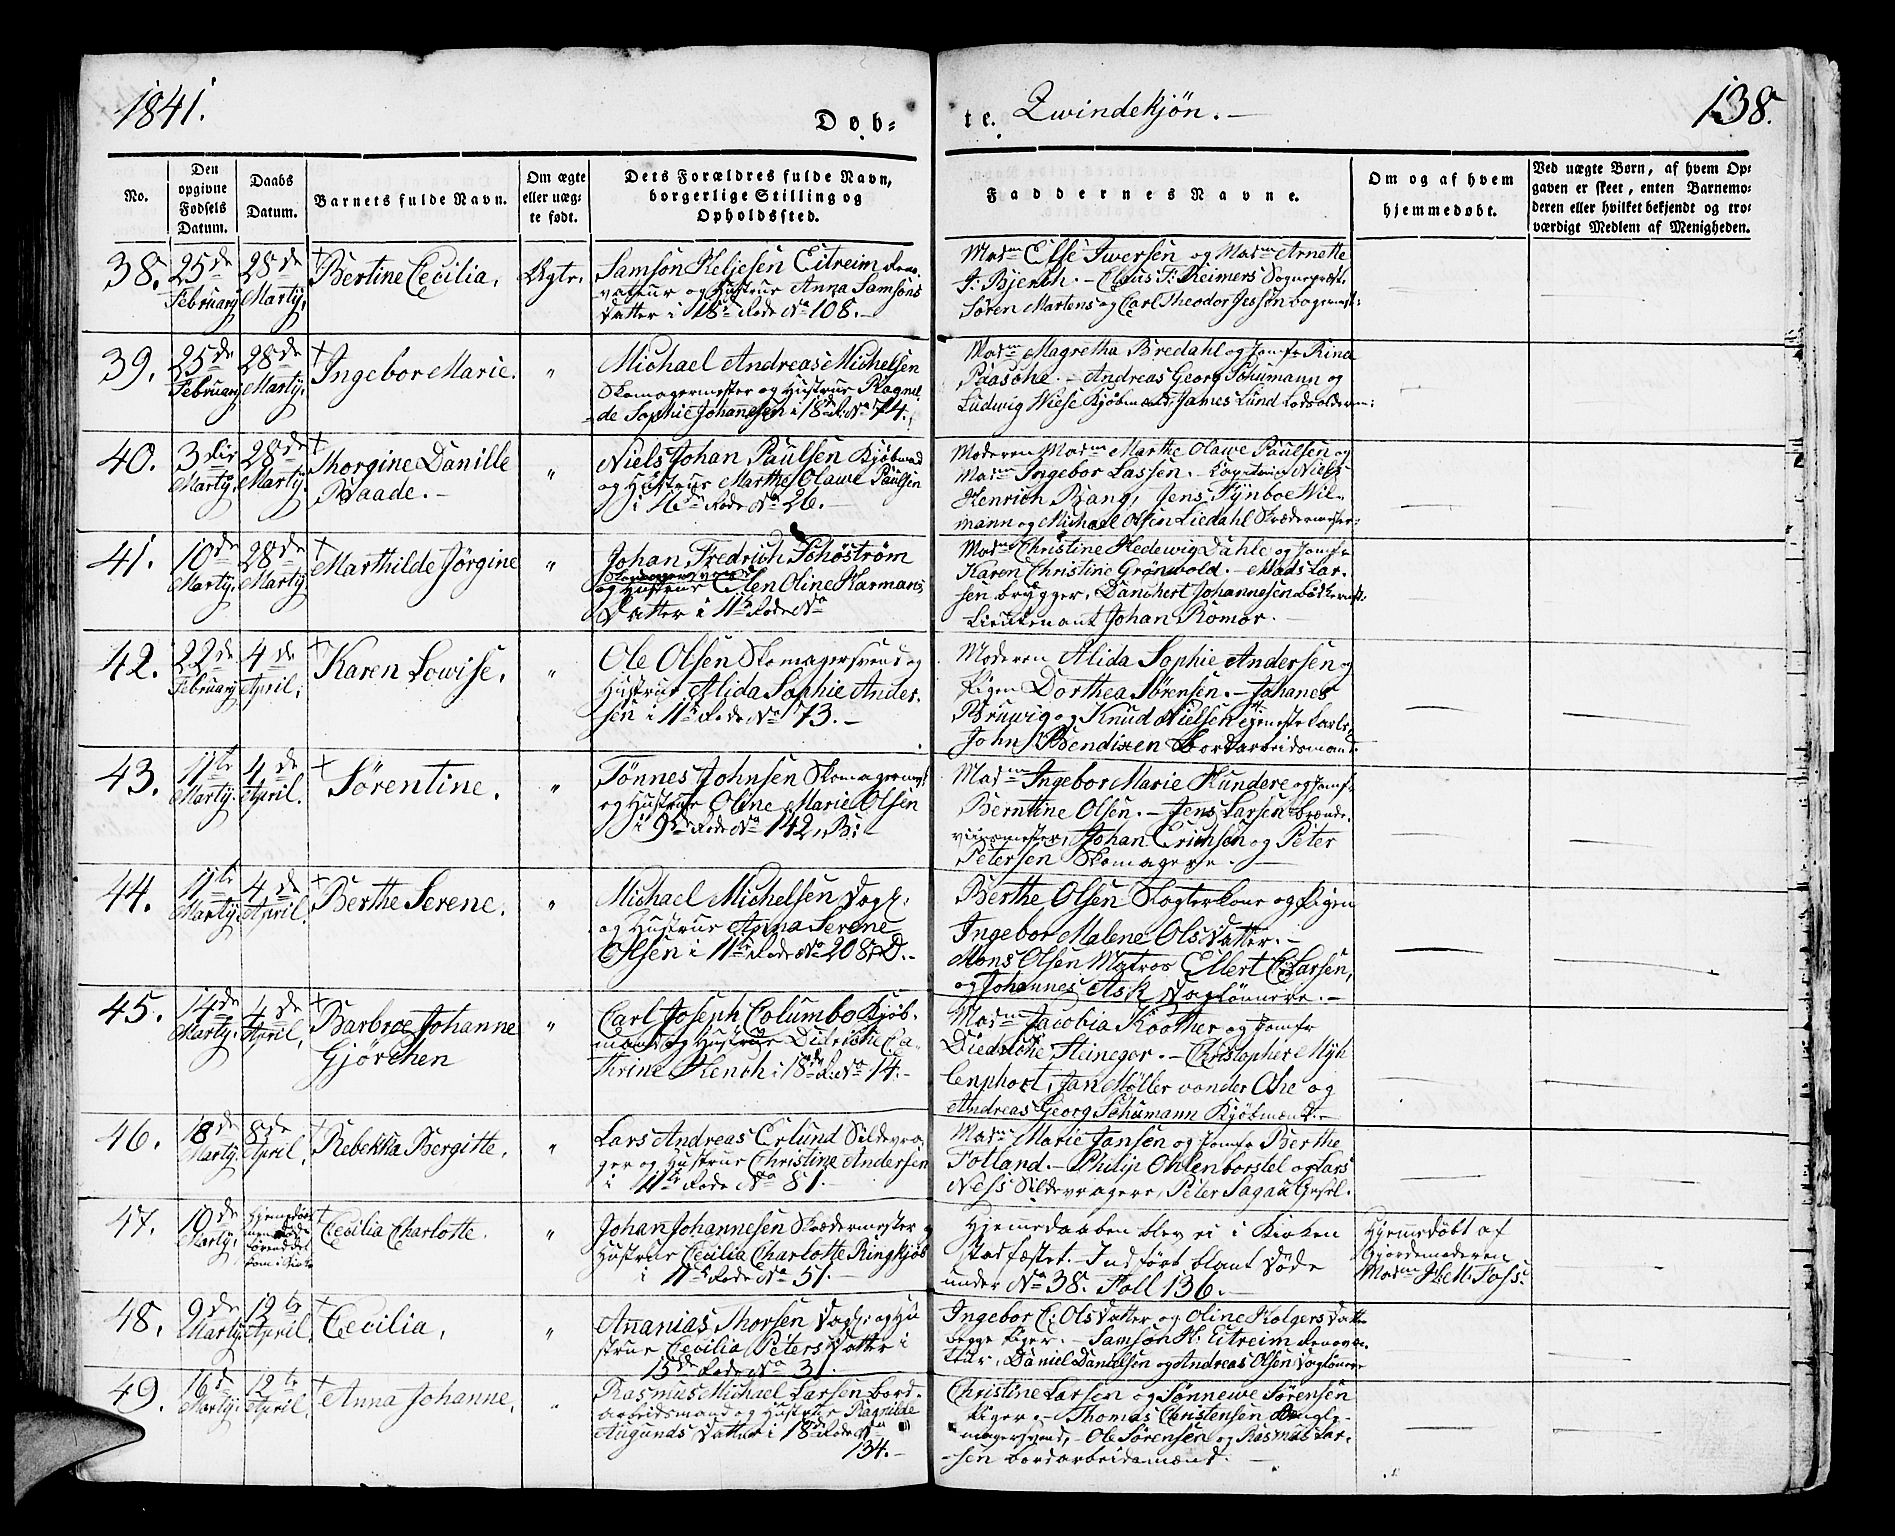 1841.
Døb-
te. Qvindekjøn. —
138.
No.
Den opgivne Fødsels Datum.
Daabs Datum.
Barnets fulde Navn.
Om ægte eller uægte født.
Dets Forældres fulde Navn, borgerlige Stilling og Opholdssted.
Faddernes Navne.
Om og af hvem hjemmedøbt.
Ved uægte Børn, af hvem Opgaven er skeet, enten Barnemoderen eller hvilket bekjendt og troværdigt Medlem af Menigheden.
38. 25de February 28de Martÿ, Bertine Cecilia, Ægte,
Samson Heljesen Eitreim Renovateur og Hustrue Anna Samsons
Datter i 18de Rode No 108. —
Madm Else Iversen og Madm Arnette
J. Bjerch. — Claus F: Reimers Sognepræst.
Søren Martens og Carl Theodor Jessen
39. 25de February 28de Martÿ. Ingebor Marie. "
Michael Andreas Michelsen
Skomagermester og Hustrue Ragnil-
de Sophie Johanesen i 18d R. No 74.
Madm Magretha Bredahl og Jomfr Rina
Paasche. — Andreas Georg Schumann og
Ludwig Wiese Kjøbmænd, James Lund
40. 3die Martÿ. 28de Martÿ. Thorgine Danille
Waade. — "
Niels Johan Paulsen Kjøbmad
og Hustrue Marthe Olawe Paulsen
i 16de Rode No 26. —
Moderen Madm Marthe Olawe Paulsen og
Madm Ingebor Lassen. Capitain Niels
Henrich Bang, Jens Fynboe Wil-
mann og Michael Olsen Liedahl Skrædermester
41. 10de Martÿ. 28de Martÿ Marthilde Jørgine "
Johan Fredrich Schøstrøm
og Hustrue Elen Oline Harmans
Datter i 11te Rode No
Madm Christine Hedewig Dahle og Jomfr
Karen Christine Grønwold. — Mads Lar-
sen brygger, Danchert Johannesen
Lieutenant Johan Romor. —
42. 22de February 4de April, Karen Lowise, "
Ole Olsen Skomagersvend og
Hustrue Alida Sophie Ander-
sen i 11te Rode No 173. —
Moderen Alida Sophie Andersen og
Pigen Dorthea Sørensen. — Johanes
Bruwig og Knud Nielsen
John Bendixen Bordarbeidsmand
43. 11te Martÿ. 4de April. Sørentine. "
Tønnes Johnsen Skomagermest
og Hustrue Oline Marie Olsen
i 9de Rode No 142, B:
Madm Ingebor Marie Kundere og Jomfr
Berntine Olsen. — Jens Larsen Brænde-
viinsmester, Johan Erichsen og Peter
Petersen Skomagere. —
44. 11te Martÿ. 4de April. Berthe Serene. "
Michael Michelsen Dagl.
og Hustrue Anna Serene
Olsen i 11te Rode No 208, D. —
Berthe Olsen Slagterkone og Pigen
Ingebor Malene Olsdatter. —
Mons Olsen Matros Ellert C: Larsen,
og Johannes Ask Daglønnere. —
45. 14de Martÿ. 4de April, Barbroe Johanne
Gjørchen "
Carl Joseph Columbo Kjøb-
mand og Hustrue Didriche Ca-
thrine Hench i 18de R: No 14. —
Madm Jacobia Koother og Jomfr
Diedriche Heineger. — Christopher Myh
lenphort, Jan Møller vonder Ohe og
Andreas Georg Schumann Kjøbmænd. —
46. 18de Martÿ. 8de April, Rebekka Bergitte, "
Lars Andreas Erlund Sildevra-
ger og Hustrue Christine Andersen
i 11te Rode No 81. —
Madm Marie Jansen og Jomfr Berthe
Folland. — Philip Ohlenborstel og Lars
Ness Sildevragere, Peter Sagau Gesel.
47. 10de Martÿ, Hjemedøbt men døde førend det kom i Kirke Cecilia Charlotte. "
Johan Johannesen Skrædermester og
Hustrue Cecilia Charlotte Ringkjøb
i 11te Rode No 51. —
Hjemedaaben blev ei i Kirken
stadfæstet. — Indført blant Døde
under No 38. Foll 136. —
Hjemedøbt af
Gjordemoderen
Madm Foss.
48. 9de Martÿ. 12te April, Cecilia, "
Ananias Thorsen Dagl: og Hu
strue Cecilia Peters Datter i
15de Rode No 31.
Ingebor C: Olsdatter og Oline Holgers Datte
begge Piger. — Samson H: Eitreim Renova-
teur, Daniel Danielsen og Andreas Olsen Daglønere
49. 16de Martÿ. 12te April. Anna Johanne, "
Rasmus Michael Larsen Bord-
arbeidsmand og Hustrue Ragnilde
Augunds Datter i 18de Rode No
134. —
Christine Larsen og Sønnewe Sørensen
Piger. — Thomas Christensen
magersvend, — Ole Sørensen og Rasmus Lar-
sen bordarbeidsmænd. —